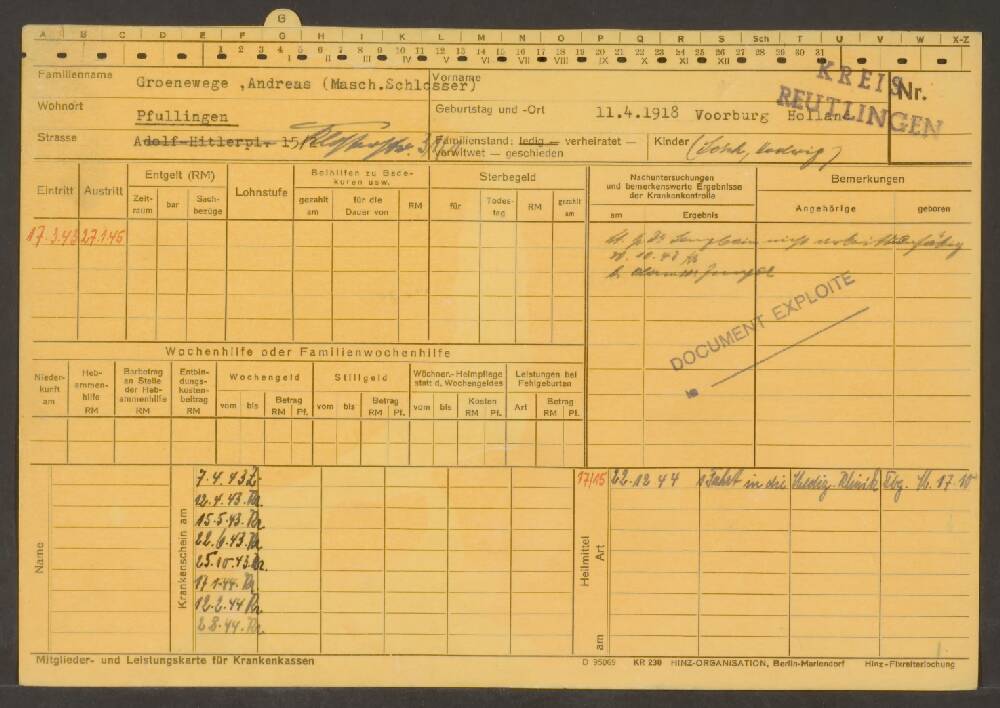 G
A B C D E F G H I K L M N O P Q R S Sch T U V W X-Z
1 2 3 4 5 6 7 8 9 10 11 12 13 14 15 16 17 18 19 20 21 22 23 24 25 26 27 28 29 30 31
I II III IV V VI VII VIII IX X XI XII
Familienname Groenewege ,Andreas (Masch.Schlosser) Vorname
KREIS REUTLINGEN
Nr.
Wohnort Pfullingen Geburtstag und -Ort 11.4.1918 Voorburg Holland
Strasse Adolf-Hitlerpl. 15 Familienstand: ledig — verheiratet — verwitwet — geschieden Kinder
Eintritt Austritt Entgelt (RM) Lohnstufe Beihilfen zu Badekuren usw. Sterbegeld Nachuntersuchungen und bemerkenswerte Ergebnisse der Krankenkontrolle Bemerkungen
Zeitraum bar Sachbezüge gezahlt am für die Dauer von RM für Todestag RM gezahlt am am Ergebnis Angehörige geboren
17.3.43 27.1.45
nicht
DOCUMENT EXPLOITE
Wochenhilfe oder Familienwochenhilfe
Niederkunft am Hebammenhilfe RM Barbetrag an Stelle der Hebammenhilfe RM Entbindungskostenbeitrag RM Wochengeld Stillgeld Wöchner.-Heimpflege statt d. Wochengeldes Leistungen bei Fehlgeburten
vom bis Betrag RM Pf. vom bis Betrag RM Pf. vom bis Kosten RM Pf. Art Betrag RM Pf.
Name
Krankenschein am
7.4.43
12.4.43 Kr.
15.5.43 Kr.
22.6.43 Kr.
25.10.43 Kr.
17.1.44 Kr.
12.2.44 Kr.
2.8.44 Kr.
Heilmittel Art am
17/15 22.12.44 1 Fahrt in die Klinik Tbg.
Mitglieder- und Leistungskarte für Krankenkassen D 95069 KR 230 HINZ-ORGANISATION, Berlin-Mariendorf Hinz-Fixreiterlochung